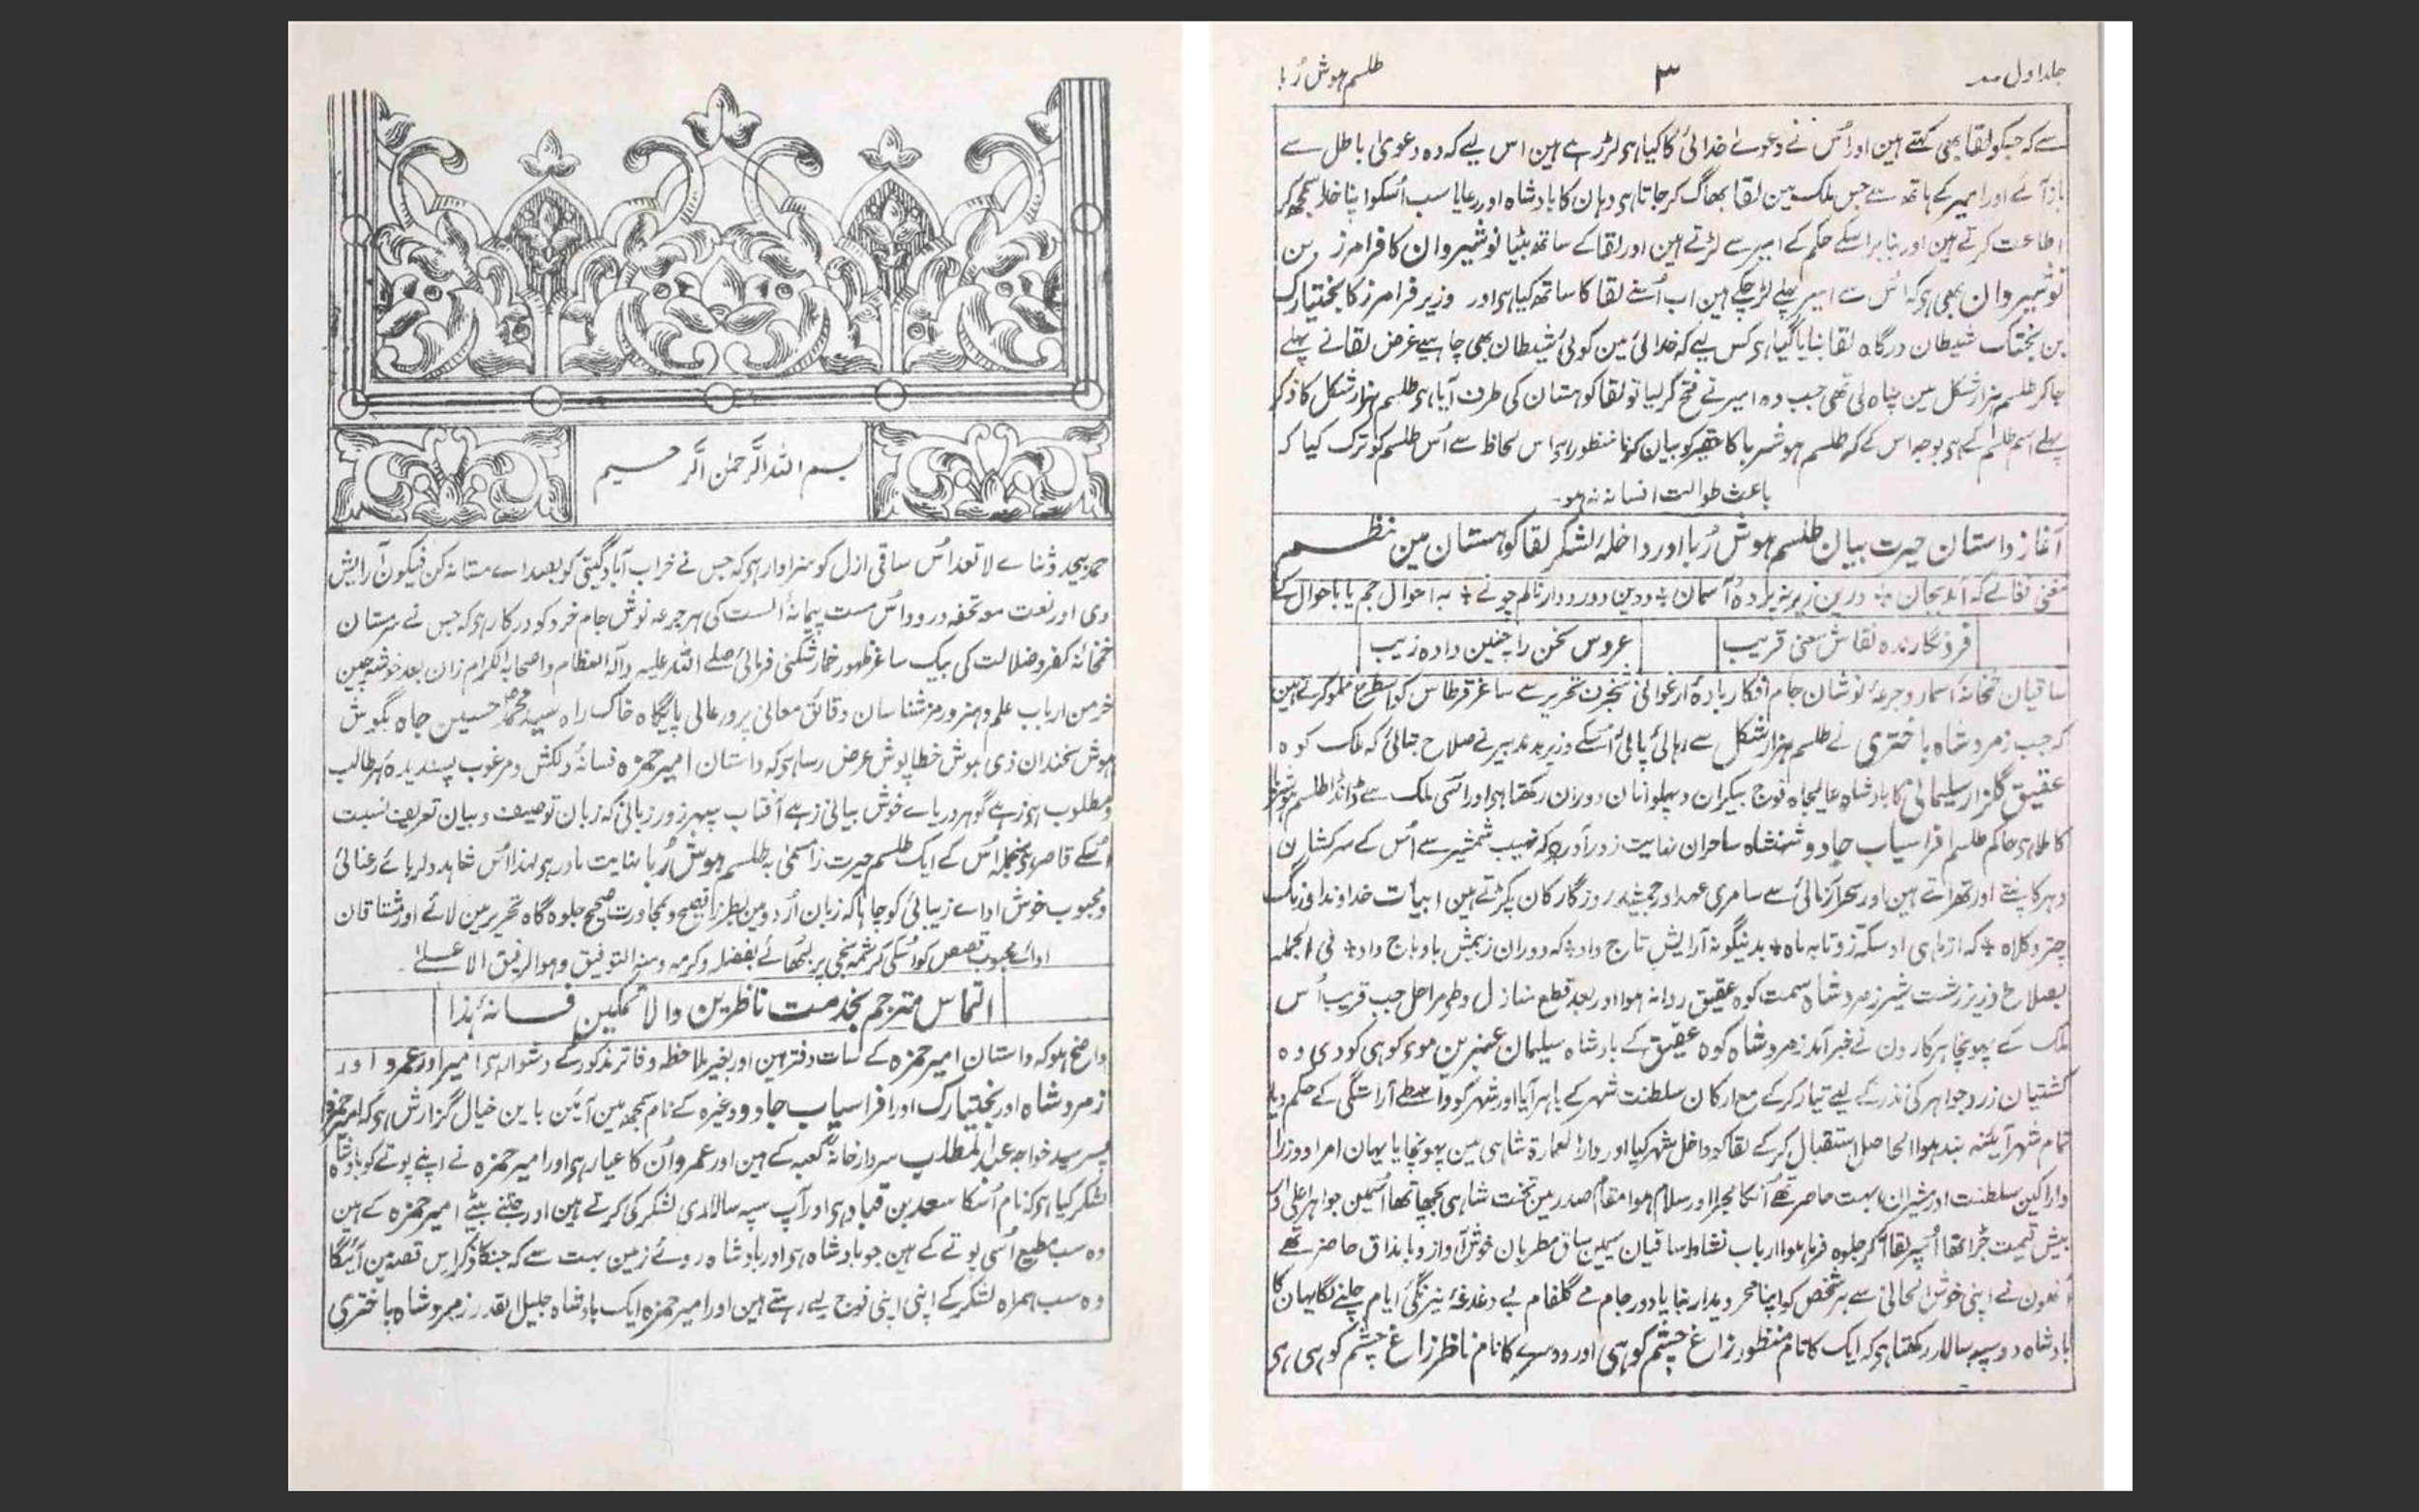 بسم اللہ الرَّحمٰن الرَّحیم
حمد بیحد و ثناے لا تعد اُس ساقی ازل کو سزاوار ہی کہ جس نے خراب آباد گیتی کو بصداے مستانہ کن فیکون آرایش
دی اور نعت مو تحفہ درود اُس مست پیمانۂ الست کی ہر جرعہ نوش جام خرد کو درکار ہی کہ جس نے مستان
خمخانۂ کفر و ضلالت کی بیک ساغر ظہور خمار شکنی فرمائی صلے اللہ علیہ وآلہ العظام واصحابہ الکرام زان بعد خوشہ چین
خرمن ارباب علم و ہنر و رمز شناسان دقائق معانی پرور عالی پایگاہ خاکسار راہ سید محمد حسین جاہ بگوش
ہوش سخندان ذی ہوش خطاپوش عرض رسا ہی کہ داستان امیر حمزہ فسانۂ دلکش و مرغوب پسندیدہ ہر طالب
و مطلوب ہی زہے گوہر دریاے خوش بیانی زہے آفتاب سپہر زور زبانی کہ زبان توصیف و بیان تعریف نسبت
اُسکے قاصر ہی منجملہ اُس کے ایک طلسم حیرت زا مسمیٰ بہ طلسم ہوش رُبا نہایت نادر ہی لہذا اُس شاہد دلرباے رعنائی
و محبوب خوش اداے زیبائی کو چاہا کہ زبان اُردو مین بطرز فصیح و محاورت صحیح جلوہ گاہ تحریر مین لائے اور مشتاقان
اداے محبوب قصص کو اُسکی کرشمہ سنجی پر لبھائے بفضلہ وکرمہ ومنہ التوفیق وھو الرفیق الاعلےٰ۔
التماس مترجم بخدمت ناظرین والا تمکین فسانہ ہٰذا
واضح ہو کہ داستان امیر حمزہ کے سات دفتر ہین اور بغیر ملاحظہ دفاتر مذکور کے دشوار ہی امیر اور عمرو اور
زمرد شاہ اور بختیارک اور افراسیاب جادو وغیرہ کے نام سمجھ مین آئین باین خیال گزارش ہی کہ امیر حمزہ
پسر سید خواجہ عبدالمطلب سردار خانۂ کعبہ کے ہین اور عمرو اُن کا عیار ہی اور امیر حمزہ نے اپنے پوتے کو بادشاہ
لشکر کیا ہی کہ نام اُسکا سعد بن قباد ہی اور آپ سپہ سالاری لشکر کی کرتے ہین اور جتنے بیٹے امیر حمزہ کے ہین
وہ سب مطیع اُسی پوتے کے ہین جو بادشاہ ہی اور بادشاہ روئے زمین بہت سے کہ جنکا ذکر اِس قصہ مین آئیگا
وہ سب ہمراہ لشکر کے اپنی اپنی فوج لیے رہتے ہین اور امیر حمزہ ایک بادشاہ جلیل القدر زمرد شاہ باختری
جلد اول
۳
طلسم ہوش رُبا
سے کہ جسکو لقا بھی کہتے ہین اور اُس نے دعوےٰ خدائی کا کیا ہی لڑ رہے ہین اس لیے کہ وہ دعویٰ باطل سے
باز آئے اور امیر کے ہاتھ سے جس ملک مین لقا بھاگ کر جاتا ہی وہان کا بادشاہ اور رعایا سب اُسکو اپنا خدا سمجھ کر
اطاعت کرتے ہین اور بنا براسکے حکم کے امیر سے لڑتے ہین اور لقا کے ساتھ بیٹا نوشیروان کا فرامرز بن
نوشیروان بھی ہی کہ اُس سے امیر پہلے لڑ چکے ہین اب اُسنے لقا کا ساتھ کیا ہی اور وزیر فرامرز کا بختیارک
بن بختک شیطان درگاہ لقا بنایا گیا ہی کس لیے کہ خدائی مین کوئی شیطان بھی چاہیے غرض لقا نے پہلے
جا کر طلسم ہزار شکل مین پناہ لی تھی جب وہ امیر نے فتح کر لیا تو لقا کوہستان کی طرف آیا ہی طلسم ہزار شکل کا ذکر
پہلے اسم طلسم کے ہی بوجہ اس کے کہ طلسم ہوشربا کا حقیر کو بیان کرنا منظور ہی اس لحاظ سے اُس طلسم کو ترک کیا کہ
باعث طوالت افسانہ نہ ہو۔
آغاز داستان حیرت بیان طلسم ہوش رُبا اور داخلۂ لشکر لقا کوہستان مین نظم
مغنی نفانے کہ آمد بجان ؞ درین زیر نہ پردہ آسمان ؞ ودین دور دوار نالم چونے ؞ بہ احوال جم یا باحوال کے
فرونگارندہ نقاش معنی قریب
عروس سخن را چنین دادہ زیب
ساقیان خمخانۂ اسمار و جرعہ نوشان جام افکار بادۂ ارغوانی شنجرف تحریر سے ساغر قرطاس کو اسطرح مملو کرتے ہین
کہ جب زمرد شاہ باختری نے طلسم ہزار شکل سے رہائی پائی اُسکے وزیر بد تدبیر نے صلاح بتائی کہ ملک کوہ
عقیق گلزار سلیمانی کا بادشاہ عالیجاہ فوج بیکران و پہلوانان دوران رکھتا ہی اور اسی ملک سے ڈانڈا طلسم ہوشربا
کا ملا ہی حاکم طلسم افراسیاب جادو شہنشاہ ساحران نہایت زور آور ہی کہ نہیب شمشیر سے اُس کے سرکشان
دہر کانپتے اور تھراتے ہین اور سحر آزمائی سے سامری عہد اور جمشید روزگار کان پکڑتے ہین ابیات خداوند اورنگ
چتر و کلاہ ؞ کہ از ماہی او سکہ زو تا بہ ماہ ؞ بدینگونہ آرایش تاج داد ؞ کہ دوران زہمتش باو باج داد ؞ فی الجملہ
بصلاح وزیر زشت شیر زمرد شاہ سمت کوہ عقیق روانہ ہوا اور بعد قطع منازل و طے مراحل جب قریب اُس
ملک کے پہونچا ہرکارون نے خبر آمد زمرد شاہ کوہ عقیق کے بادشاہ سلیمان عنبرین موے کوہی کو دی وہ
کشتیان زر و جواہر کی نذر کے لیے تیار کرکے مع ارکان سلطنت شہر کے باہر آیا اور شہر کو واسطے آراستگی کے حکم دیا
تمام شہر آئینہ بند ہوا الحاصل استقبال کرکے لقا کو داخل شہر کیا اور دارالعمارۃ شاہی مین پہونچایا یہان امرا و وزرا
و اراکین سلطنت اور مشیران بہت حاضر تھے اُنکا مجرا اور سلام ہوا مقام صدر مین تخت شاہی بچھا تھا اُسمین جواہر اعلیٰ اور
بیش قیمت جڑا تھا اُسپر لقا آکر جلوہ فرما ہوا ارباب نشاط و ساقیان سیمین ساق مطربان خوش آواز و بامذاق حاضر تھے
اُنھون نے اپنی خوش الحانی سے ہر شخص کو اپنا محو دیدار بنایا دور جام مے گلفام بے دغدغۂ نیرنگی ایام چلنے لگا یہان کا
بادشاہ دو سپہ سالار رکھتا ہی کہ ایک کا نام منظور زاغ چشم کوہی اور دوسرے کا نام ناظر زاغ چشم کوہی ہی